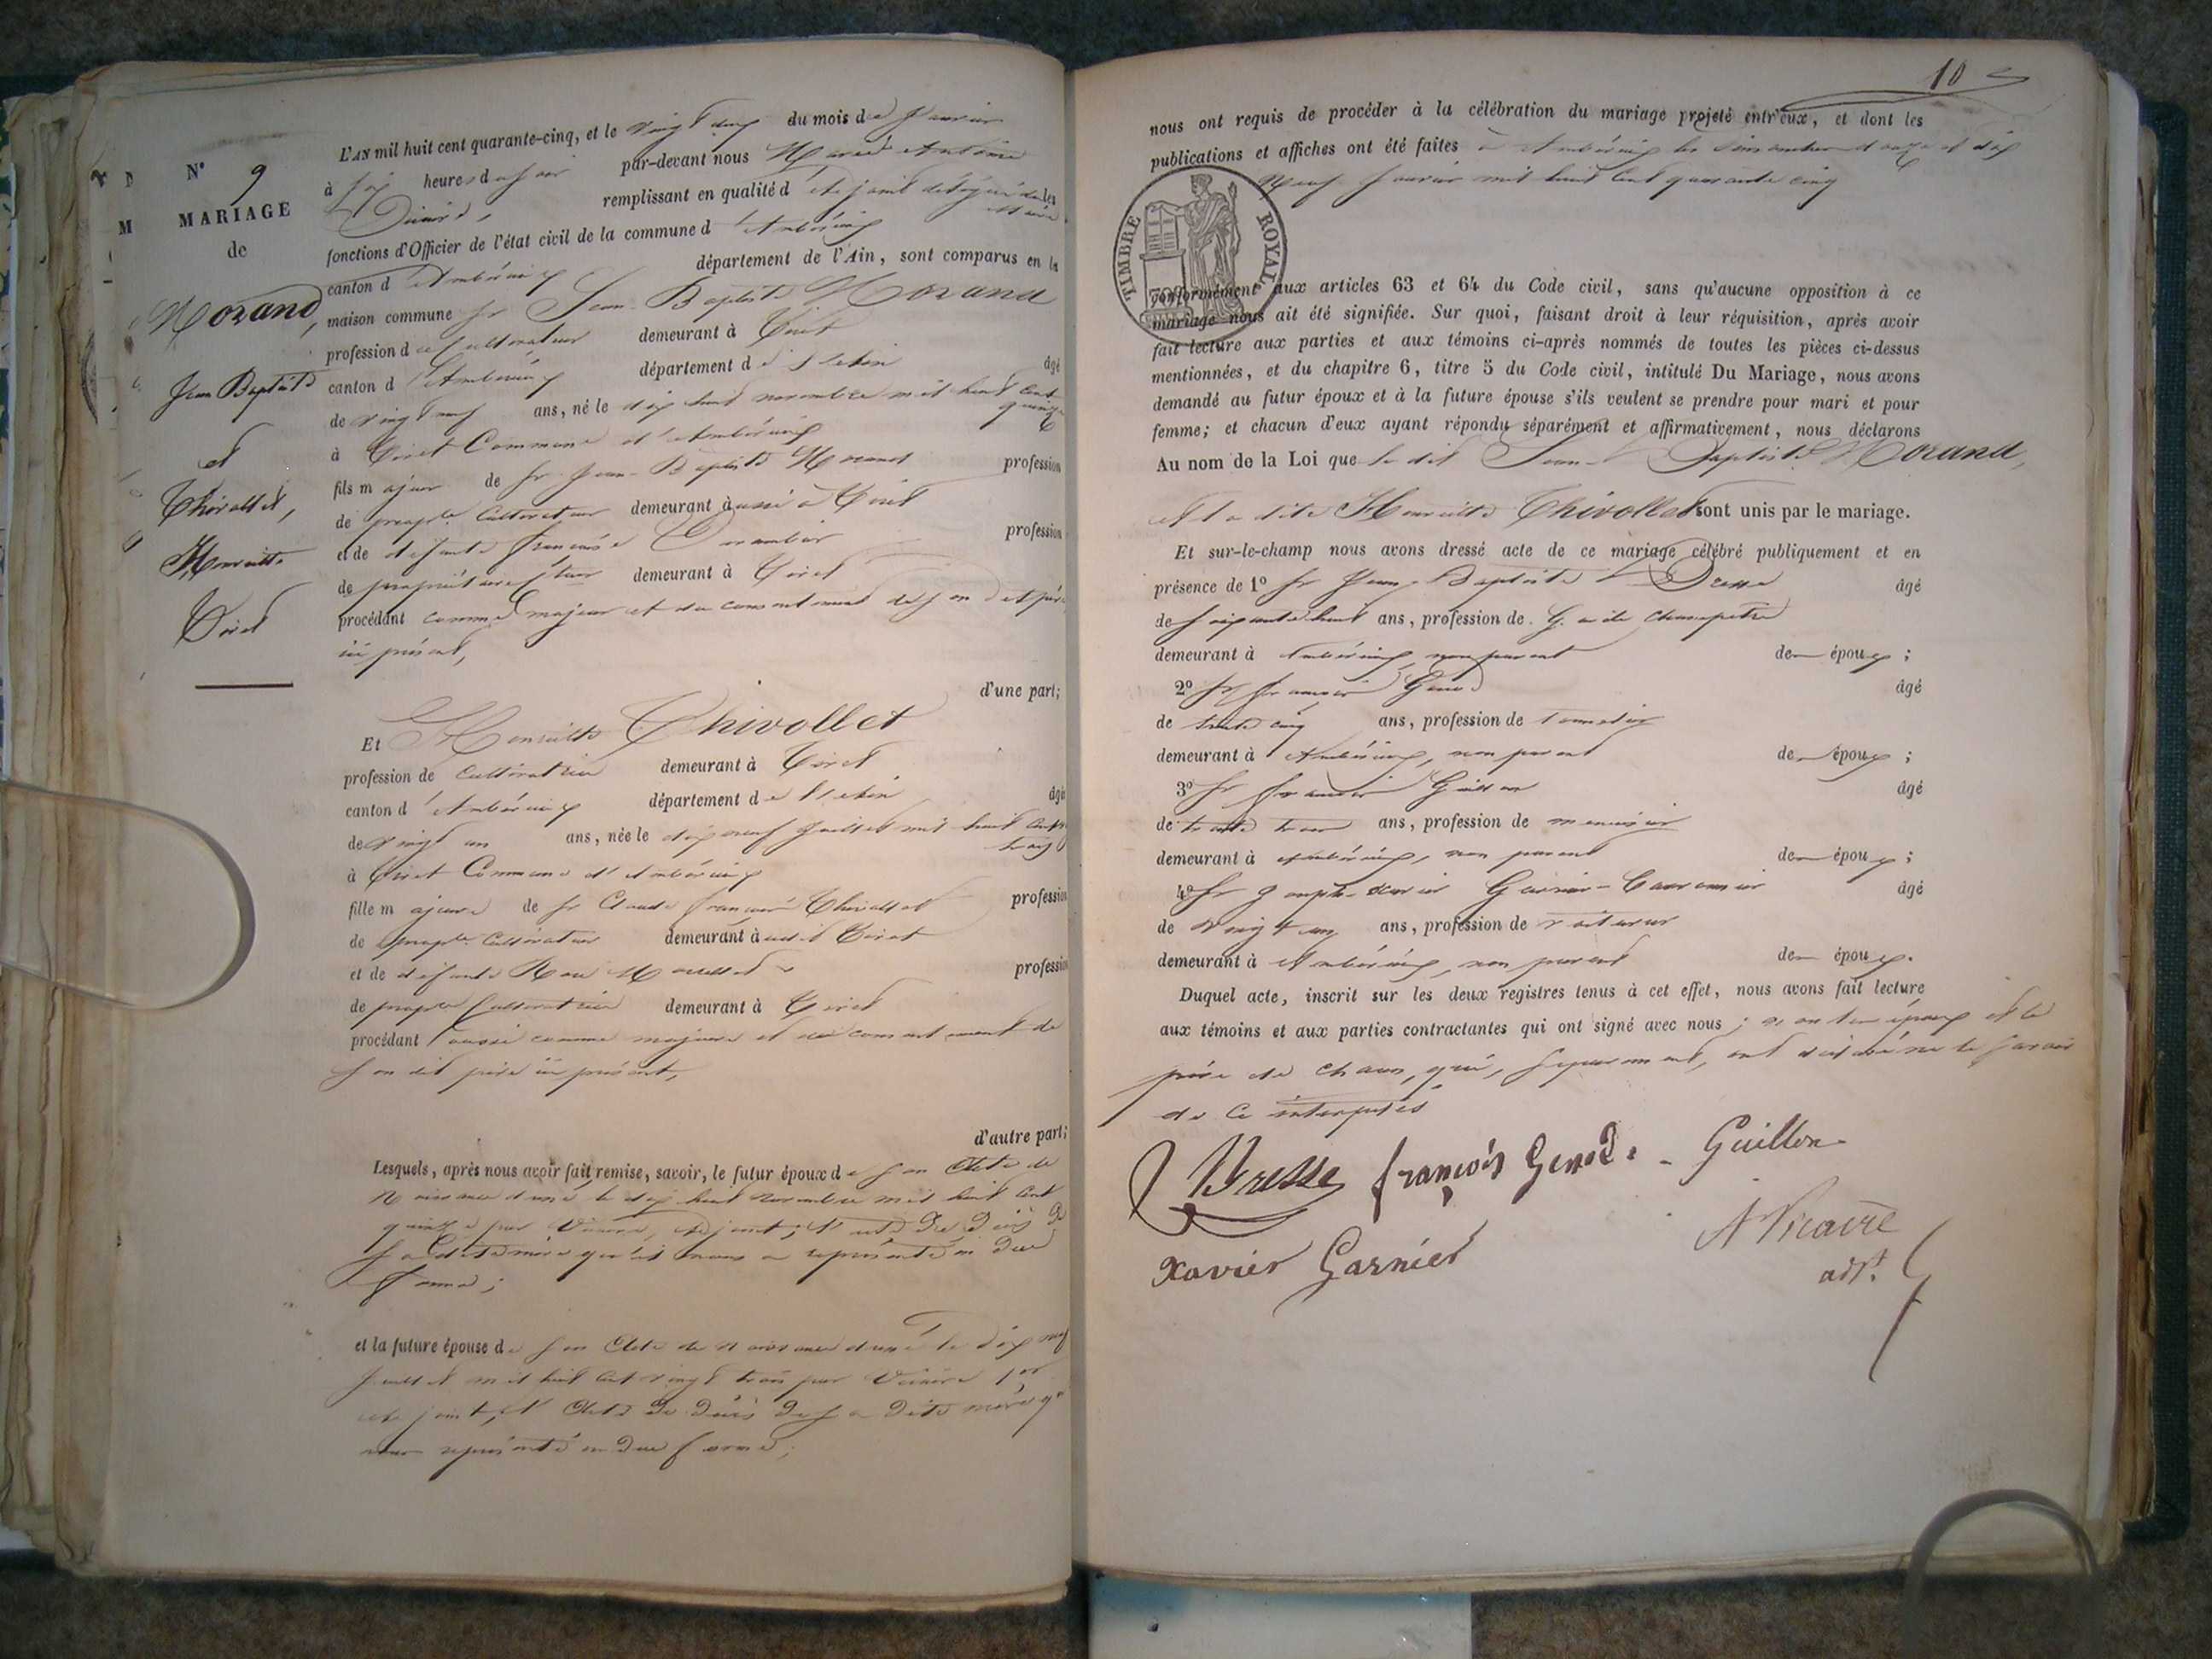 N° 9
MARIAGE
de
Morand,
Jean Baptiste
et
Thivollet,
Henriette
Tiret
L'AN mil huit cent quarante-cinq, et le vingt deux du mois de Janvier
à six heures du soir par-devant nous Marie Antoine
remplissant en qualité d'adjoint délégué les
fonctions d'Officier de l'état civil de la commune d'Ambérieux
canton d'Ambérieux département de l'Ain, sont comparus en la
maison commune Sr Jean-Baptiste Morand
profession de Cultivateur demeurant à Tiret
canton d'Ambérieux département de l'Ain âgé
de vingt neuf ans, né le dix huit novembre mil huit cent
quinze
à Tiret Commune d'Ambérieux
fils majeur de Sr Jean-Baptiste Morand profession
de propre Cultivateur demeurant aussi à Tiret
et de défunte Françoise profession
de demeurant à Tiret
procédant comme majeur et du consentement de son dit père
ici présent,
d'une part;
Et Henriette Thivollet
profession de Cultivatrice demeurant à Tiret
canton d'Ambérieux département de l'Ain âgé
de vingt un ans, née le dix neuf Juillet mil huit cent
trois
à Tiret Commune d'Ambérieux
fille majeure de Sr Claude François Thivollet profession
de propre Cultivateur demeurant audit Tiret
et de défunte profession
de propre Cultivatrice demeurant à Tiret
procédant aussi comme majeure et du consentement de
son dit père ici présent,
d'autre part;
Lesquels, après nous avoir fait remise, savoir, le futur époux de son Acte de
Naissance du dix huit novembre mil huit cent
quinze par adjoint; l'acte de décès de
sa dite mère qu'il nous a représenté en due
forme;
et la future épouse de son Acte de naissance le dix neuf
Juillet mil huit cent vingt trois par
adjoint, l'Acte de décès de sa dite mère
nous représenté en due forme;
10
nous ont requis de procéder à la célébration du mariage projeté entr'eux, et dont les
publications et affiches ont été faites à Ambérieux les dimanches douze et dix
Neuf Janvier mil huit cent quarante cinq
TIMBRE ROYAL
conformément aux articles 63 et 64 du Code civil, sans qu'aucune opposition à ce
mariage nous ait été signifiée. Sur quoi, faisant droit à leur réquisition, après avoir
fait lecture aux parties et aux témoins ci-après nommés de toutes les pièces ci-dessus
mentionnées, et du chapitre 6, titre 5 du Code civil, intitulé Du Mariage, nous avons
demandé au futur époux et à la future épouse s'ils veulent se prendre pour mari et pour
femme; et chacun d'eux ayant répondu séparément et affirmativement, nous déclarons
Au nom de la Loi que le dit Jean-Baptiste Morand,
et la dite Henriette Thivollet sont unis par le mariage.
Et sur-le-champ nous avons dressé acte de ce mariage célébré publiquement et en
présence de 1° Sr Jean-Baptiste Bresse âgé
de soixante huit ans, profession de Garde champêtre
demeurant à Ambérieux, non parent des époux;
2° Sr François Genod âgé
de trente cinq ans, profession de
demeurant à Ambérieux, non parent des époux;
3° Sr François Guillon âgé
de trente trois ans, profession de menuisier
demeurant à Ambérieux, non parent des époux;
4° Sr Joseph-Xavier Garnier- âgé
de vingt ans, profession de voiturier
demeurant à Ambérieux, non parent des époux.
Duquel acte, inscrit sur les deux registres tenus à cet effet, nous avons fait lecture
aux témoins et aux parties contractantes qui ont signé avec nous; non les époux et le
père de chacun, qui, séparément, ont déclaré ne le savoir
de ce interpelés
Bresse françois Genod. Guillon
Xavier Garnier
A Vicaire
adjt.